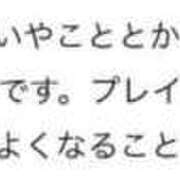 いやこととか
です。プレイ
よくなること